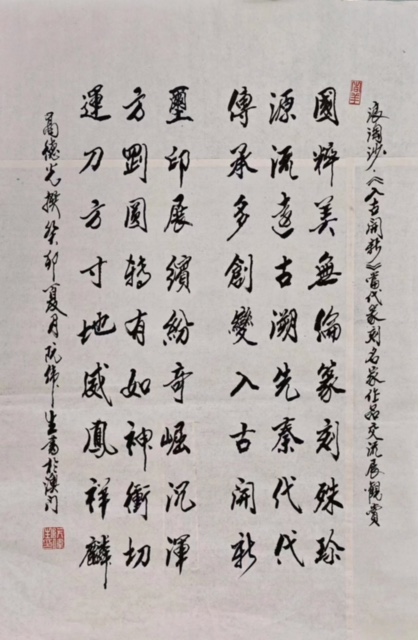 浪淘沙·《入古開新》當代篆刻名家作品交流展觀賞
國粹美無倫篆刻殊珍
源流遠古溯先秦代代
傳承多創變入古開新
璽印展繽紛奇崛沉渾
方剛圓轉有如神衝切
運刀方寸地威鳳祥麟
德光撰癸卯夏月阮偉生書於澳門